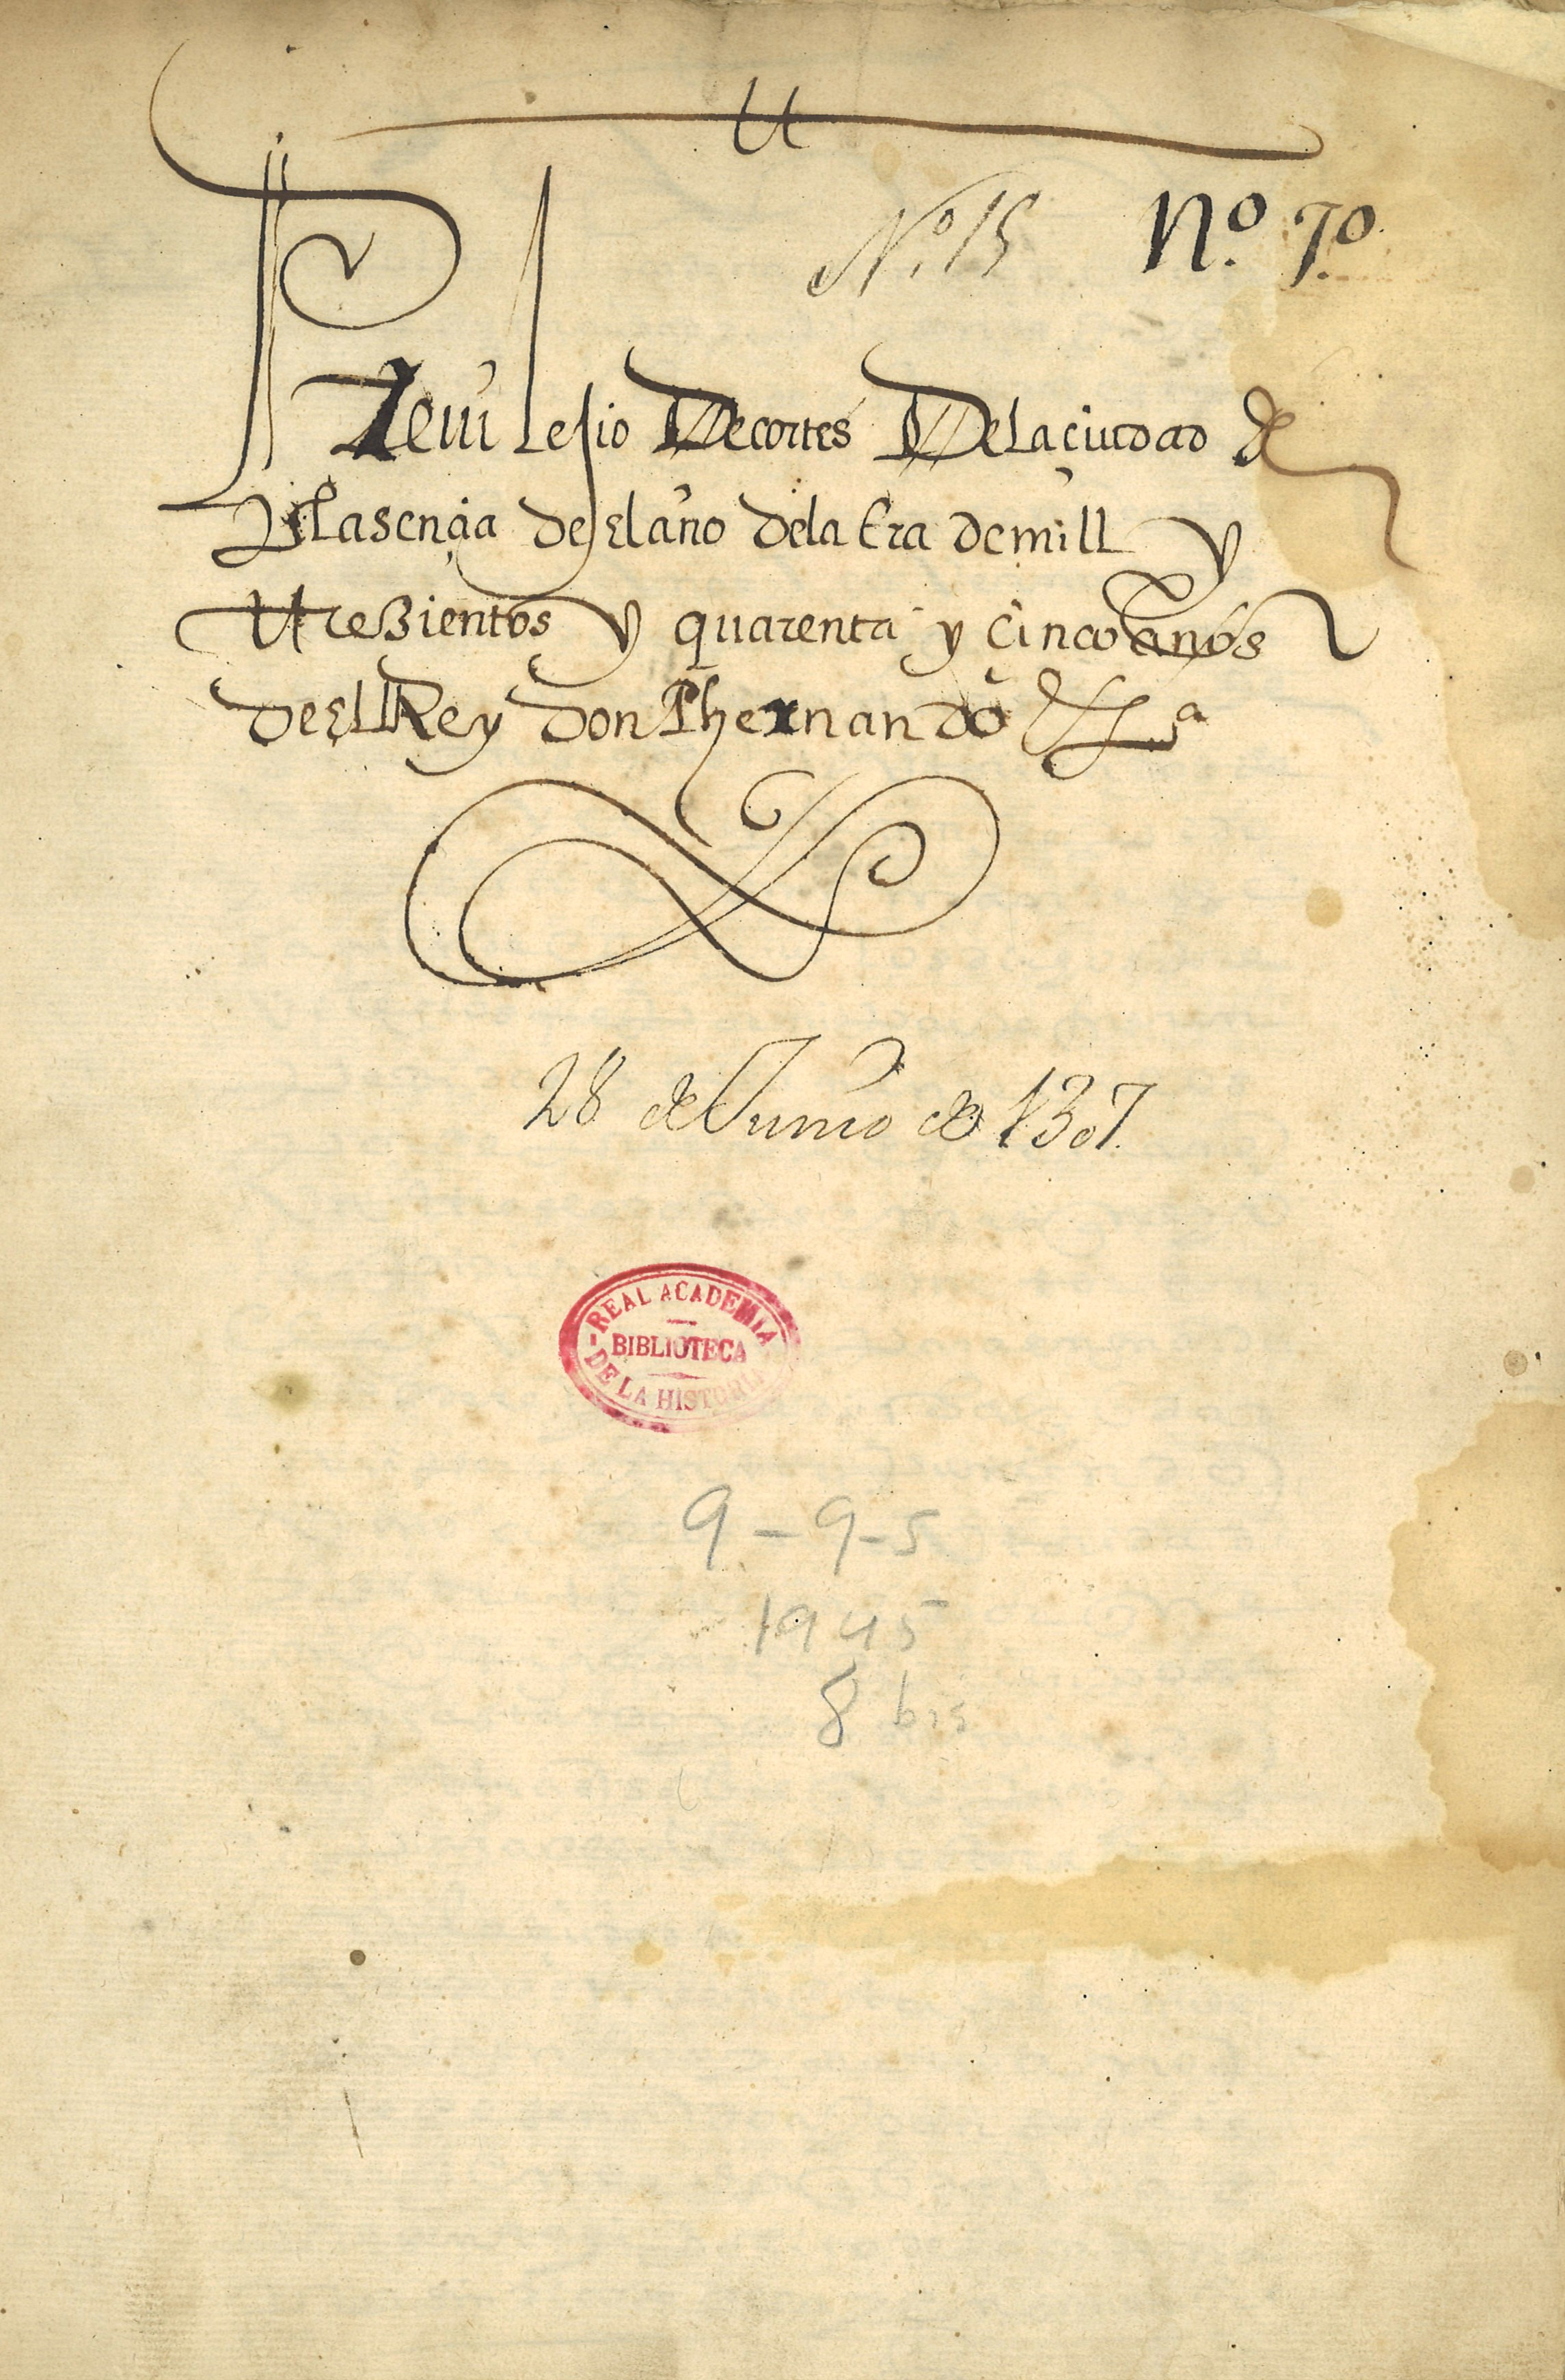 Nº 15 Nº. 7º.
Preuilesio De cortes De La çiudad de
Plasençia de el año de la Era de mill y
treZientos y quarenta y çinco años
de el Rey don Phernando
28 de Junio de 1307.
REAL ACADEMIA
BIBLIOTECA
DE LA HISTORIA
9-9-5
1945
8 bis